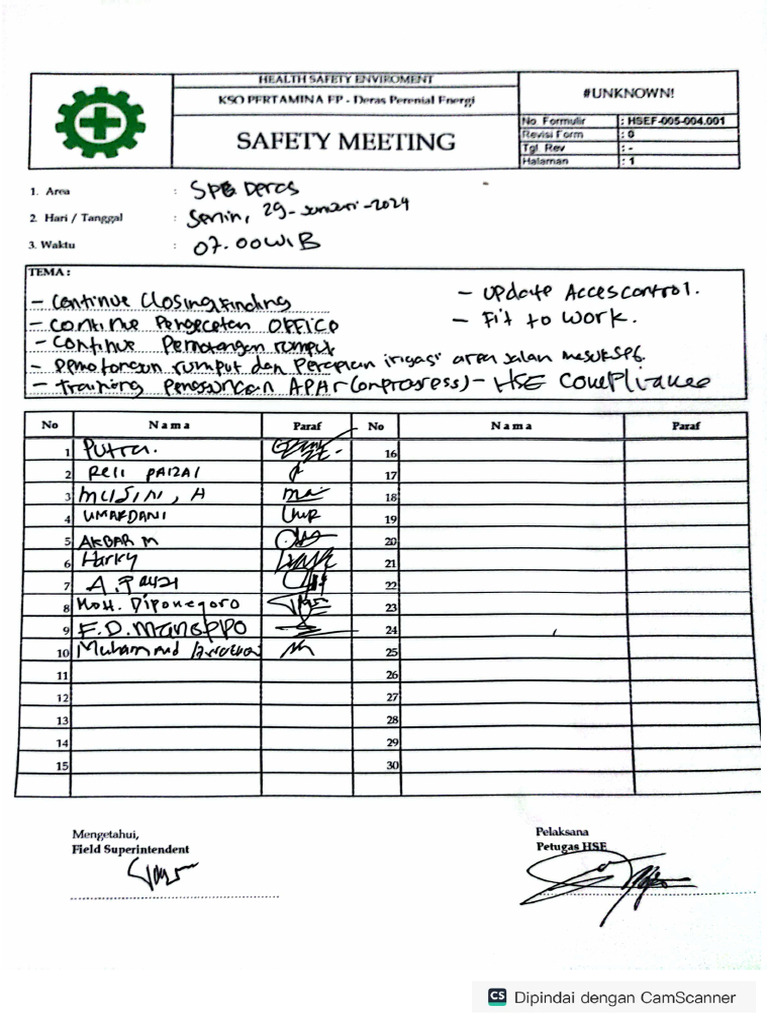 HEALTH SAFETY ENVIROMENT
KSO PERTAMINA EP - Deras Perenial Energi
SAFETY MEETING
#UNKNOWN!
No. Formulir : HSEF-005-004.001
Revisi Form : 0
Tgl. Rev : -
Halaman : 1
1. Area : SPG Deras
2. Hari / Tanggal : Senin, 29-Januari-2024
3. Waktu : 07.00 WIB
TEMA :
- Continue Closing Finding
- Continue Pengecetan OFFICE
- Continue Pemotongan rumput
- Pemotongan rumput dan Perapian irigasi area jalan masuk SPG.
- Training Penggunaan APAR (onprogress) - HSE Compliance
- Update Accescontrol.
- Fit to Work.
No Nama Paraf No Nama Paraf
1 Putra. 16
2 RELI 17
3 18
4 UMARDANI 19
5 AKBAR M 20
6 Harky 21
7 A. 22
8 MOH. Diponegoro 23
9 F.D. Manoppo 24
10 Muhammad 25
11 26
12 27
13 28
14 29
15 30
Mengetahui,
Field Superintendent
Pelaksana
Petugas HSE
CS Dipindai dengan CamScanner